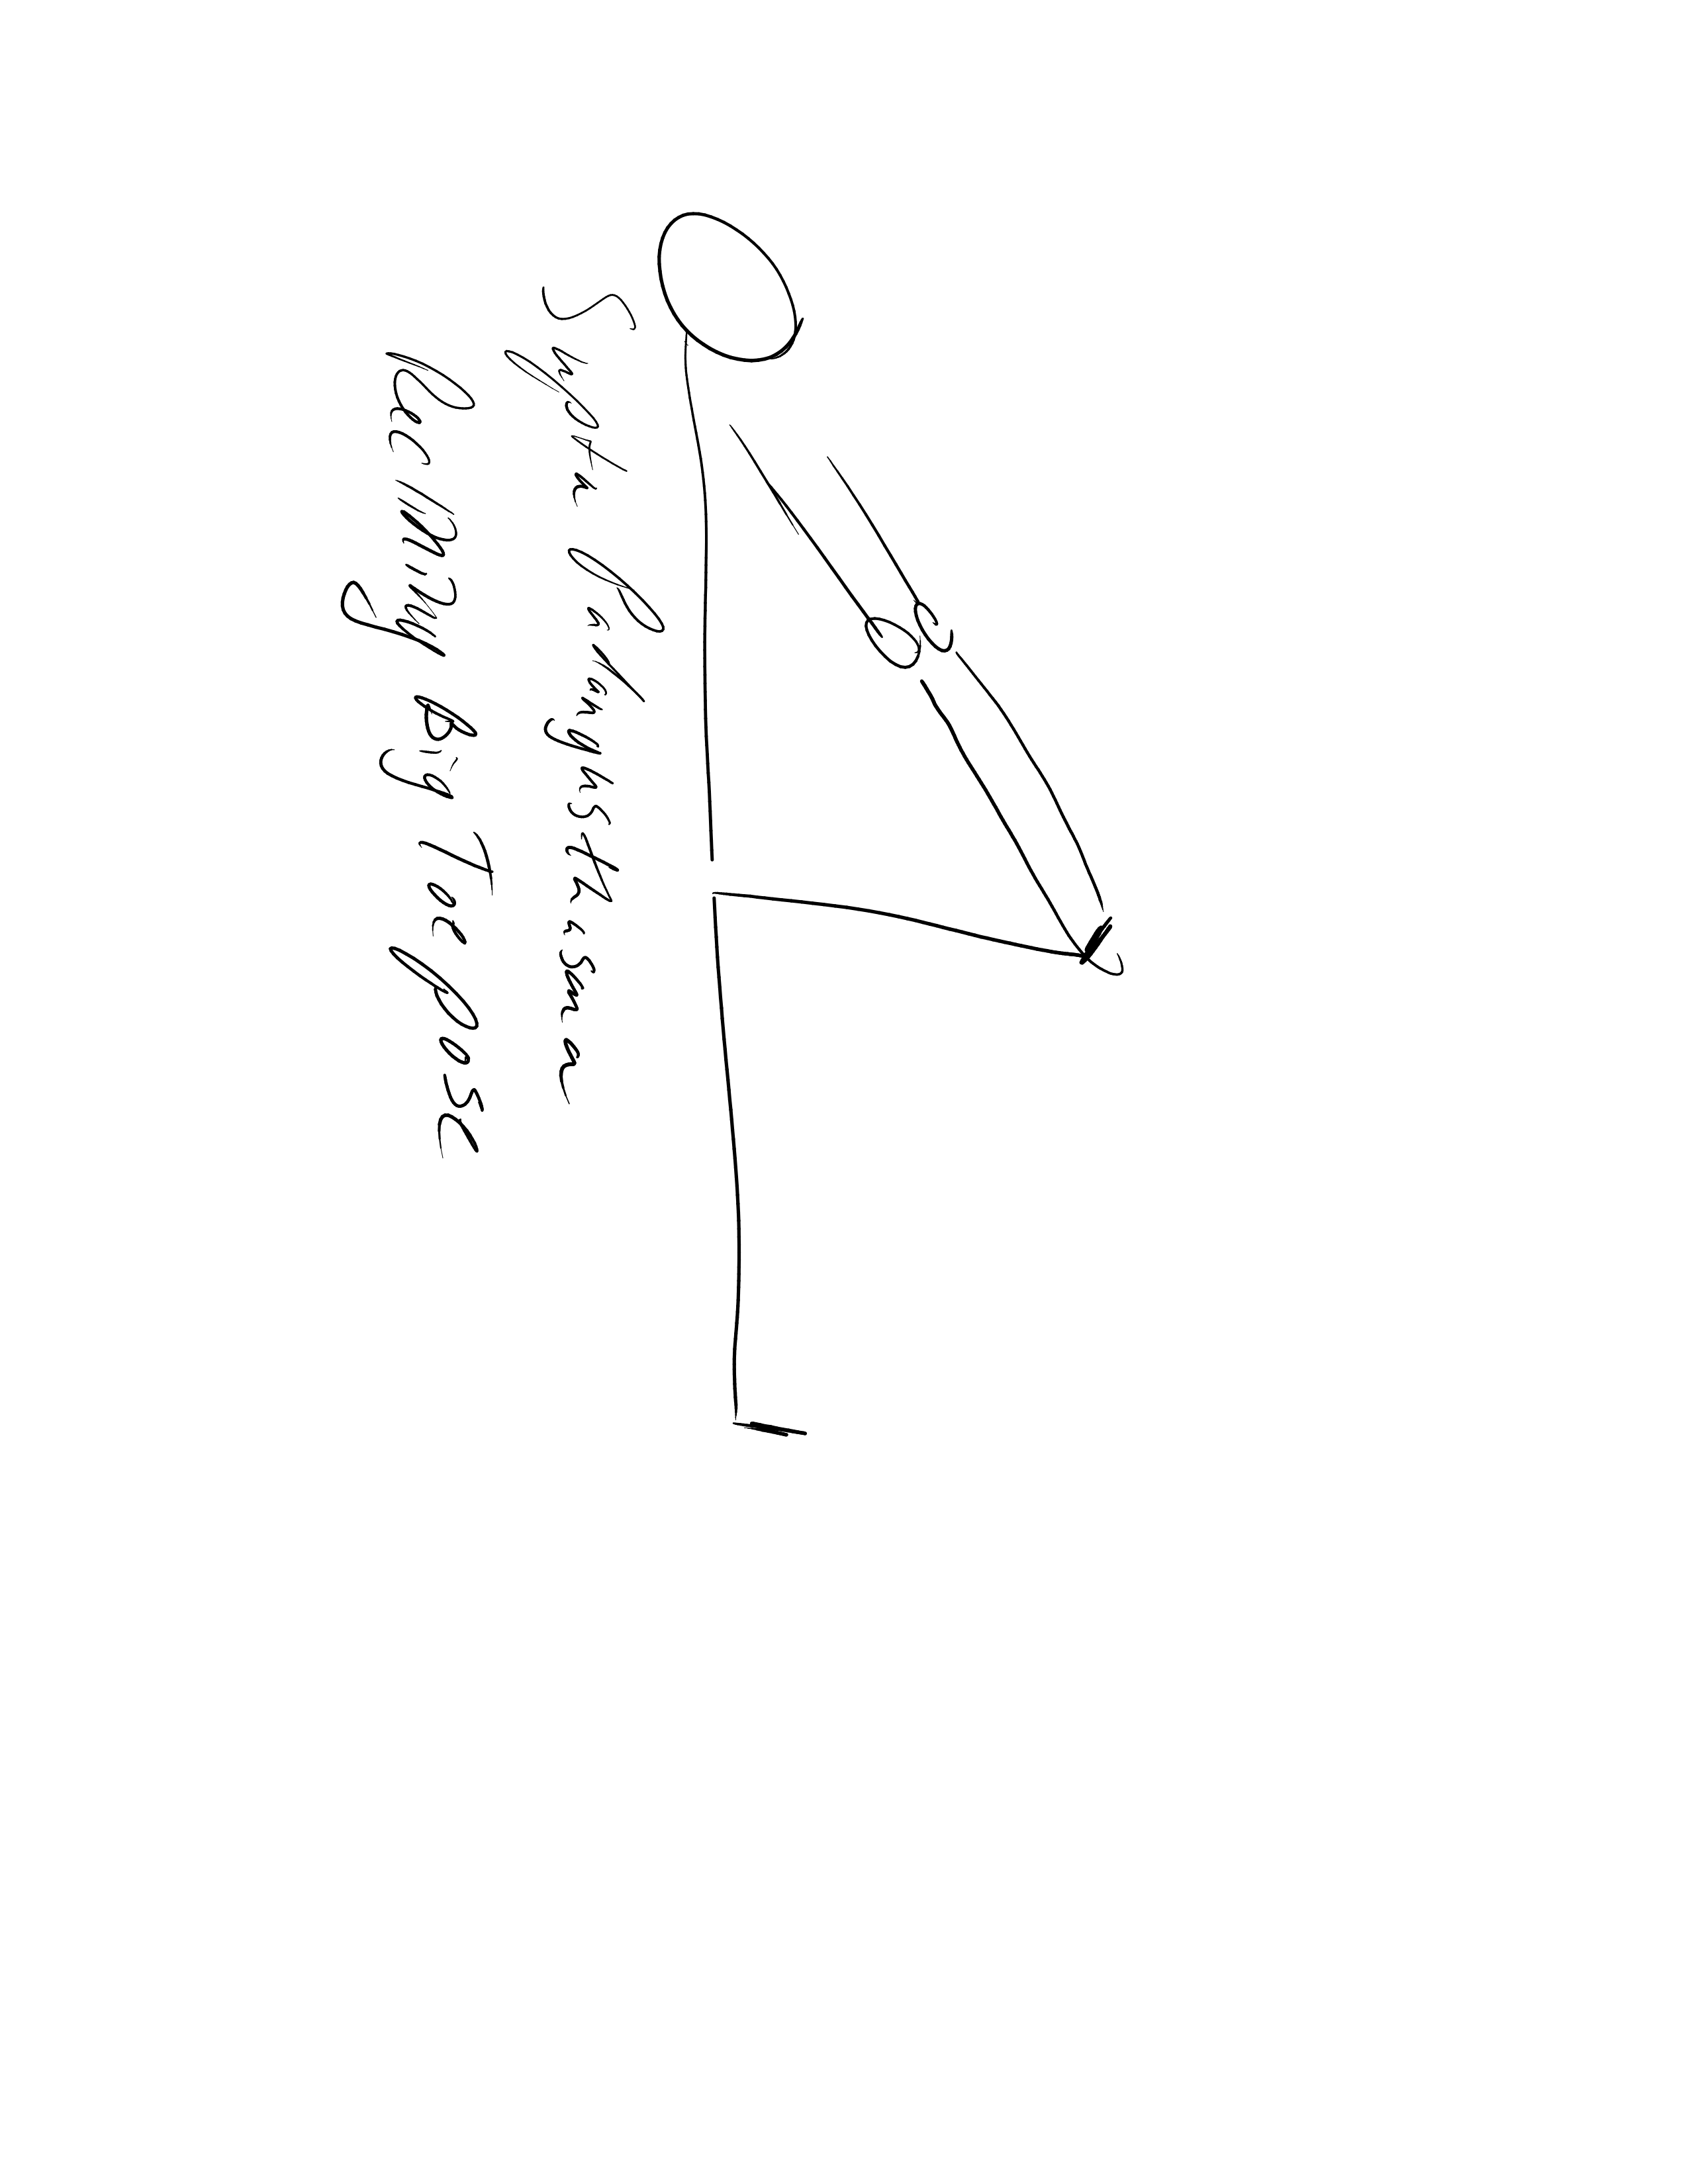 Supta Padangusthasana
Reclining Big Toe Pose